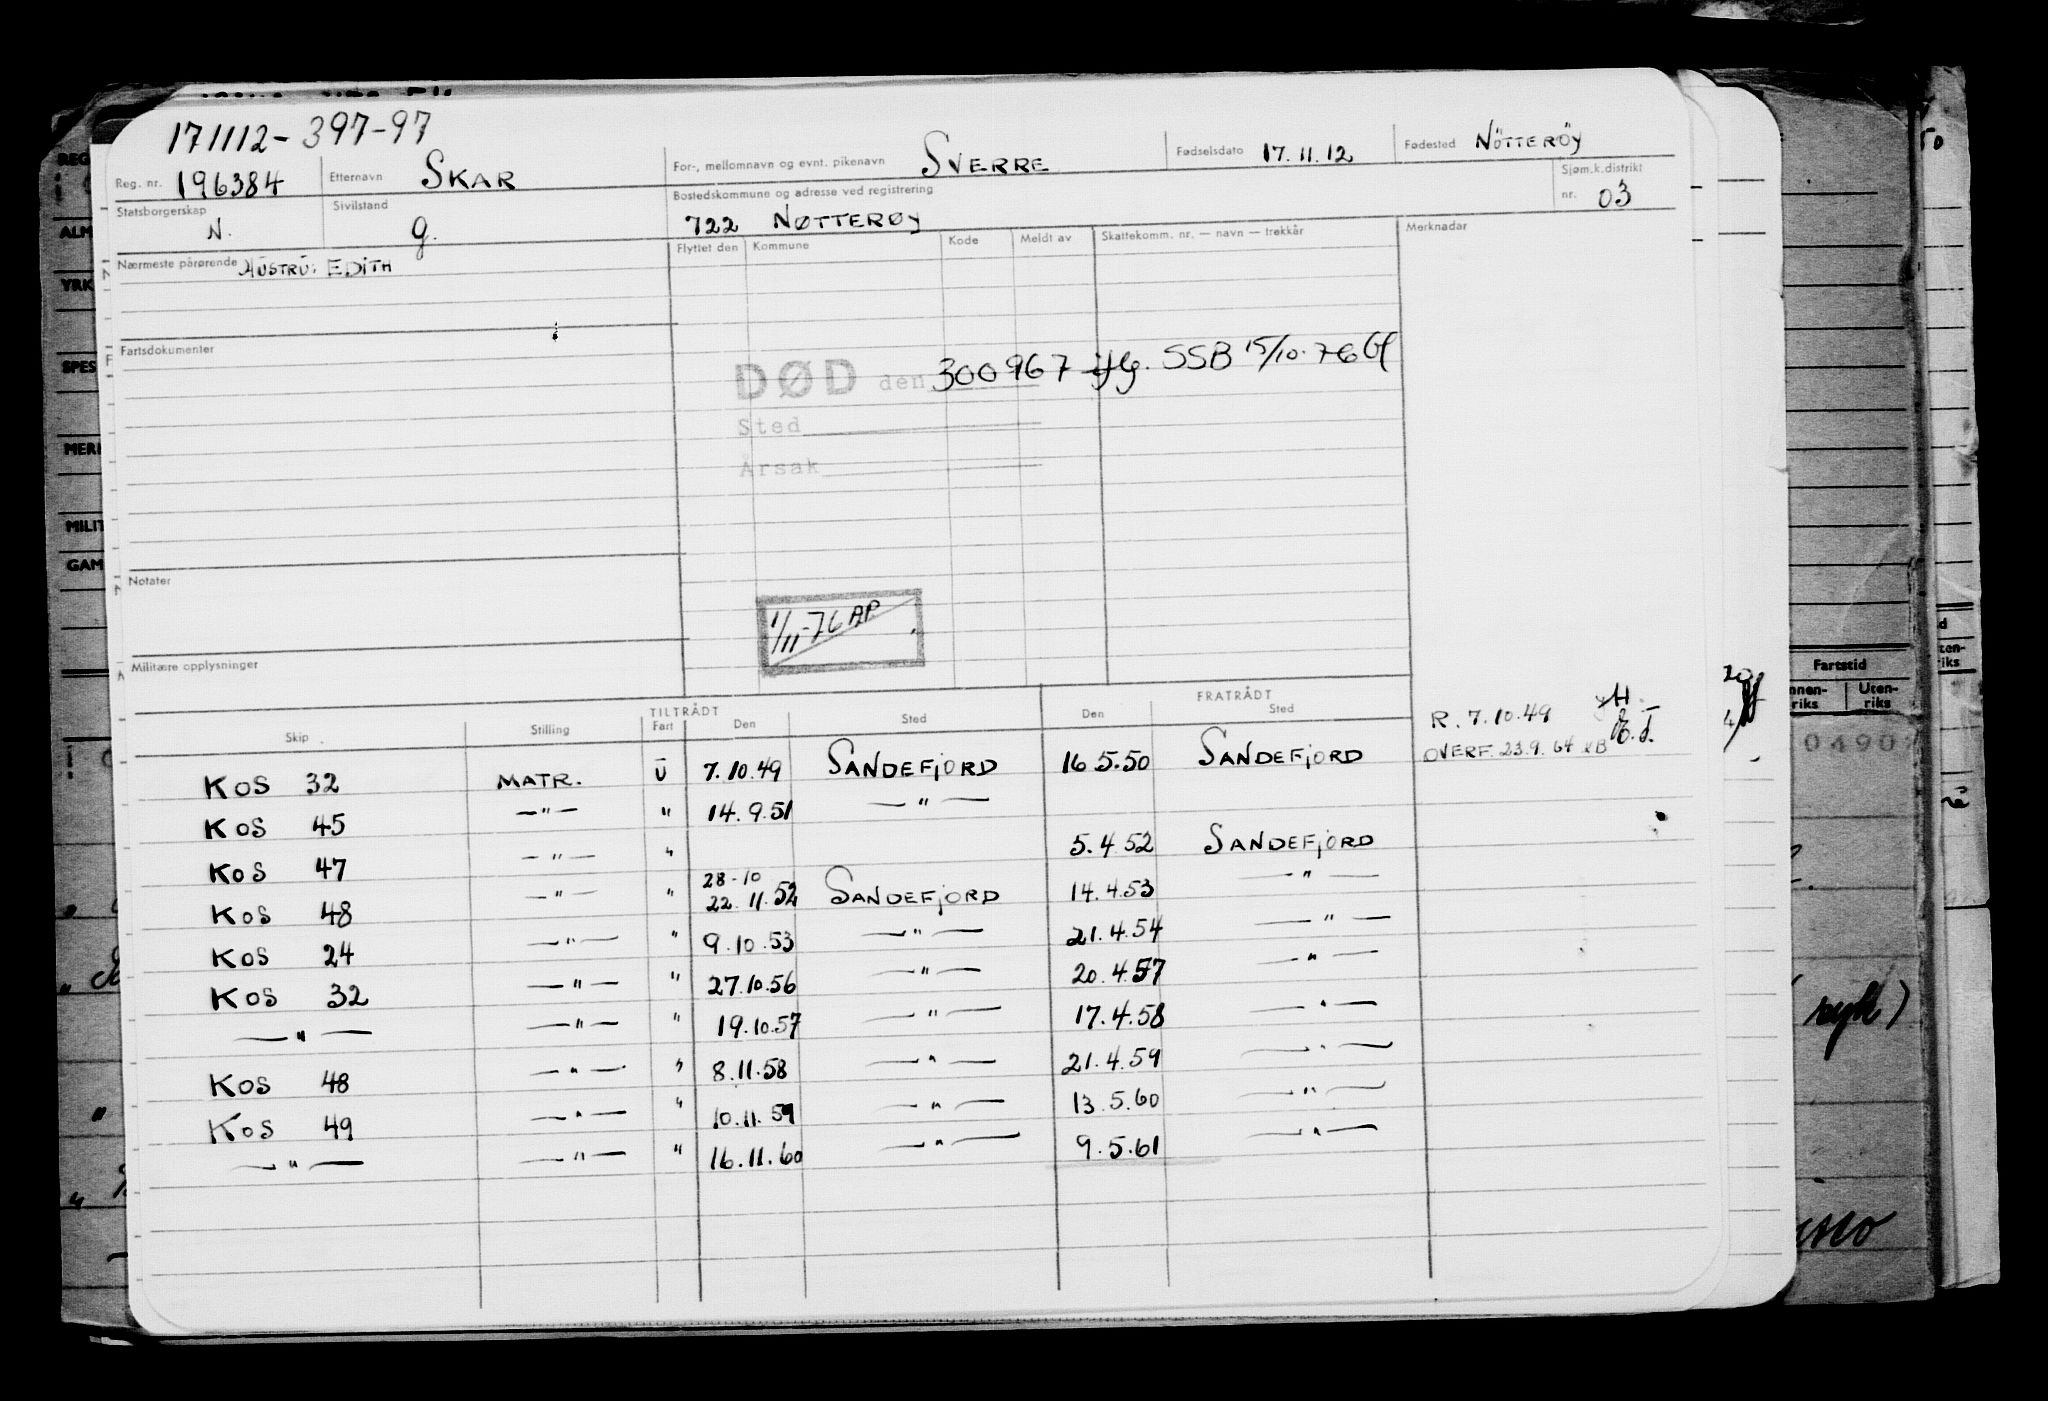 171112-397-97
Reg. nr. 196384 Etternavn SKAR For-, mellomnavn og evnt. pikenavn SVERRE Fødselsdato 17.11.12 Fødested NÖTTERÖY
Statsborgerskap N. Sivilstand g. Bostedskommune og adresse ved registrering 722 NØTTERØY Sjøm.k.distrikt nr. 03
Nærmeste pårørende HUSTRU: EDITH Flyttet den Kommune Kode Meldt av Skattekomm. nr. — navn — trekkår Merknadar
Fartsdokumenter
DØD den 300967 iflg. SSB 15/10-76
Sted
Årsak
Notater
1/11-76 AP
Militære opplysninger
TILTRÅDT FRATRÅDT
Skip Stilling Fart Den Sted Den Sted
R. 7.10.49
OVERF. 23.9.64
KOS 32 MATR. U 7.10.49 SANDEFJORD 16.5.50 SANDEFJORD
KOS 45 —"— " 14.9.51 —"—
KOS 47 —"— " 5.4.52 SANDEFJORD
28-10
KOS 48 —"— " 22.11.52 SANDEFJORD 14.4.53 —"—
KOS 24 —"— " 9.10.53 —"— 21.4.54 —"—
KOS 32 —"— " 27.10.56 —"— 20.4.57 —"—
—"— —"— " 19.10.57 —"— 17.4.58 —"—
KOS 48 —"— " 8.11.58 —"— 21.4.59 —"—
KOS 49 —"— " 10.11.59 —"— 13.5.60 —"—
—"— —"— " 16.11.60 —"— 9.5.61 —"—
REG
ALM
YRK
SPES
MERI
MILIT
GAM
Fartstid
Uten-
riks
0490